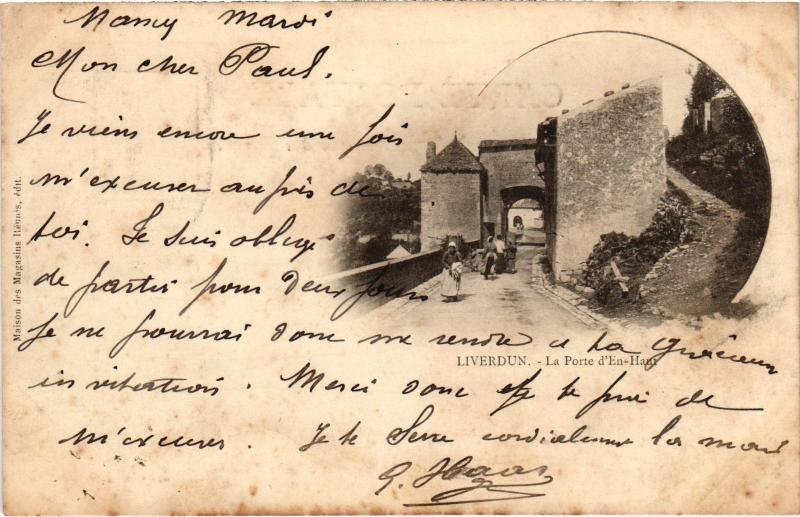 Nancy Mardi
Mon cher Paul.
Je viens encore une fois
m'excuser auprès de
toi. Je suis obligé
de partir pour deux jours
Je ne pourrai donc me rendre à ta gracieuse
invitation. Merci donc et te prie de
m'excuser. Je te serre cordialement la main
G. Haas
LIVERDUN. - La Porte d'En-Haut
Maison des Magasins Réunis, édit.